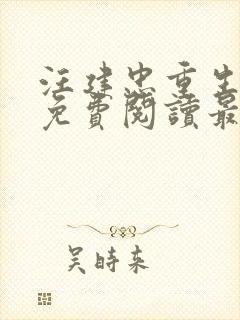 汪建忠重生
免費閱讀最
吴時来